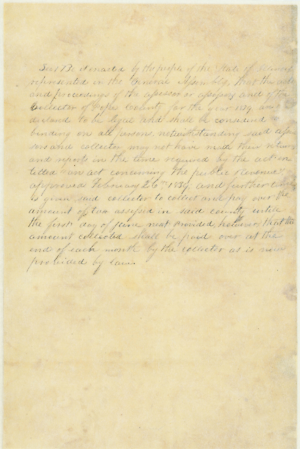 Sec 1 Be it enacted by the people of the State of Illinois
represented in the General Assembly, that the acts
and proceedings of the assessor or assessors and of the
Collector of Pope County, for the year 1839, are
declared to be legal and shall be considered
binding on all persons, notwithstanding said asses
sors and collector may not have made their returns
and reports in the time required by the act en
titled "an act concerning the public revenue"
approved February 26th 1839, and further time
is given said collector to collect and pay over the
amount of tax assessed in said county until
the first day of June next provided, however, that the
amount collected shall be paid over at the
end of each month by the collector as is now
provided by law.